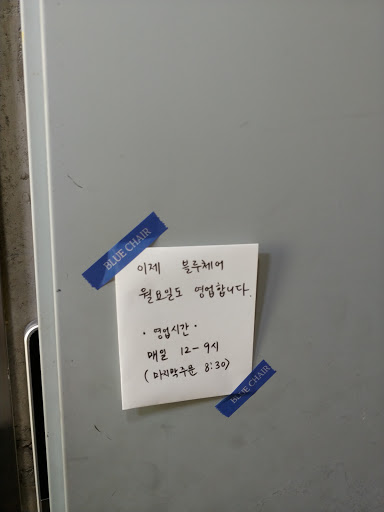 BLUE CHAIR
이제 블루체어
월요일도 영업합니다.
· 영업시간 ·
매일 12-9시
(마지막주문 8:30)
BLUE CHAIR